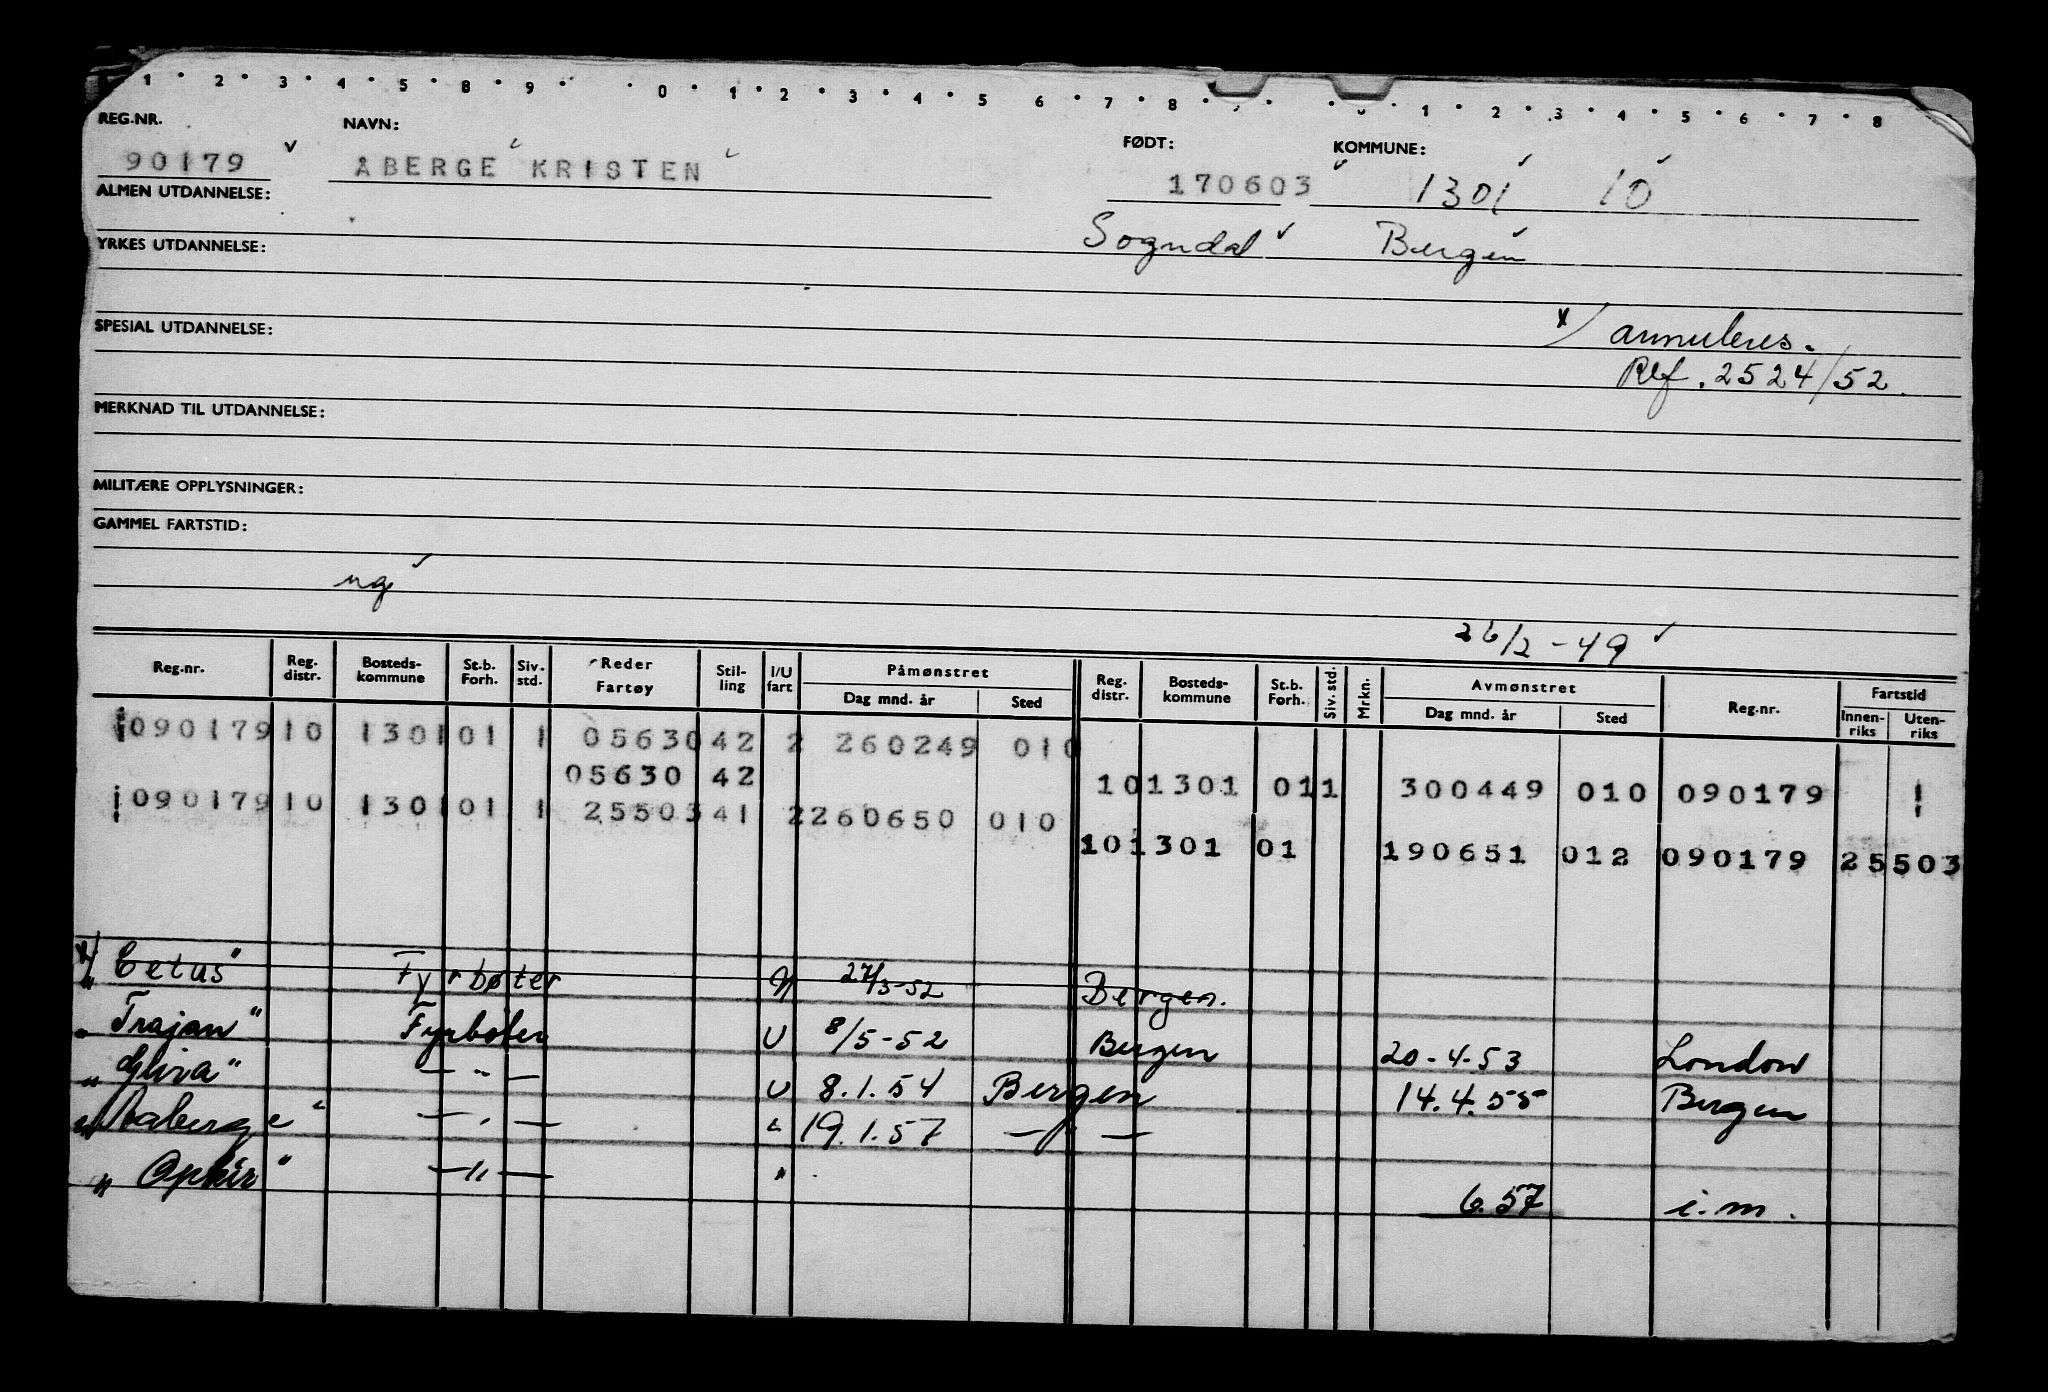 1 2 3 4 5 6 7 8 9 0 1 2 3 4 5 6 7 8 1 2 3 4 5 6 7 8
REG.NR. NAVN: FØDT: KOMMUNE:
90179 ÅBERGE KRISTEN 170603 1301 10
ALMEN UTDANNELSE:
Sogndal Bergen
YRKES UTDANNELSE:
x/ annuleres.
SPESIAL UTDANNELSE:
Ref. 2524/52.
MERKNAD TIL UTDANNELSE:
MILITÆRE OPPLYSNINGER:
GAMMEL FARTSTID:
26/2-49
Reg.nr. Reg. distr. Bosteds-kommune St.b. Forh. Siv. std. Reder Fartøy Stil-ling I/U fart Påmønstret Dag mnd. år Sted Reg. distr. Bosteds-kommune St.b. Forh. Siv. std. Mrkn. Avmønstret Dag mnd. år Sted Reg.nr. Fartstid Innen-riks Uten-riks
090179 10 1301 01 1 05630 42 2 260249 010
05630 42 10 1301 01 1 300449 010 090179
090179 10 1301 01 1 25503 41 2 260650 010
10 1301 01 190651 012 090179 25503
x/ "Cetus" Fyrbøter 27/3-52 Bergen.
"Trajan" Fyrbøter U 8/5-52 Bergen 20-4-53 London
" — " — U 8.1.54 Bergen 14.4.55 Bergen
"Aaberge" — " — " 19.1.57 — " —
"Ophir" — " — " 6.57 i.m.